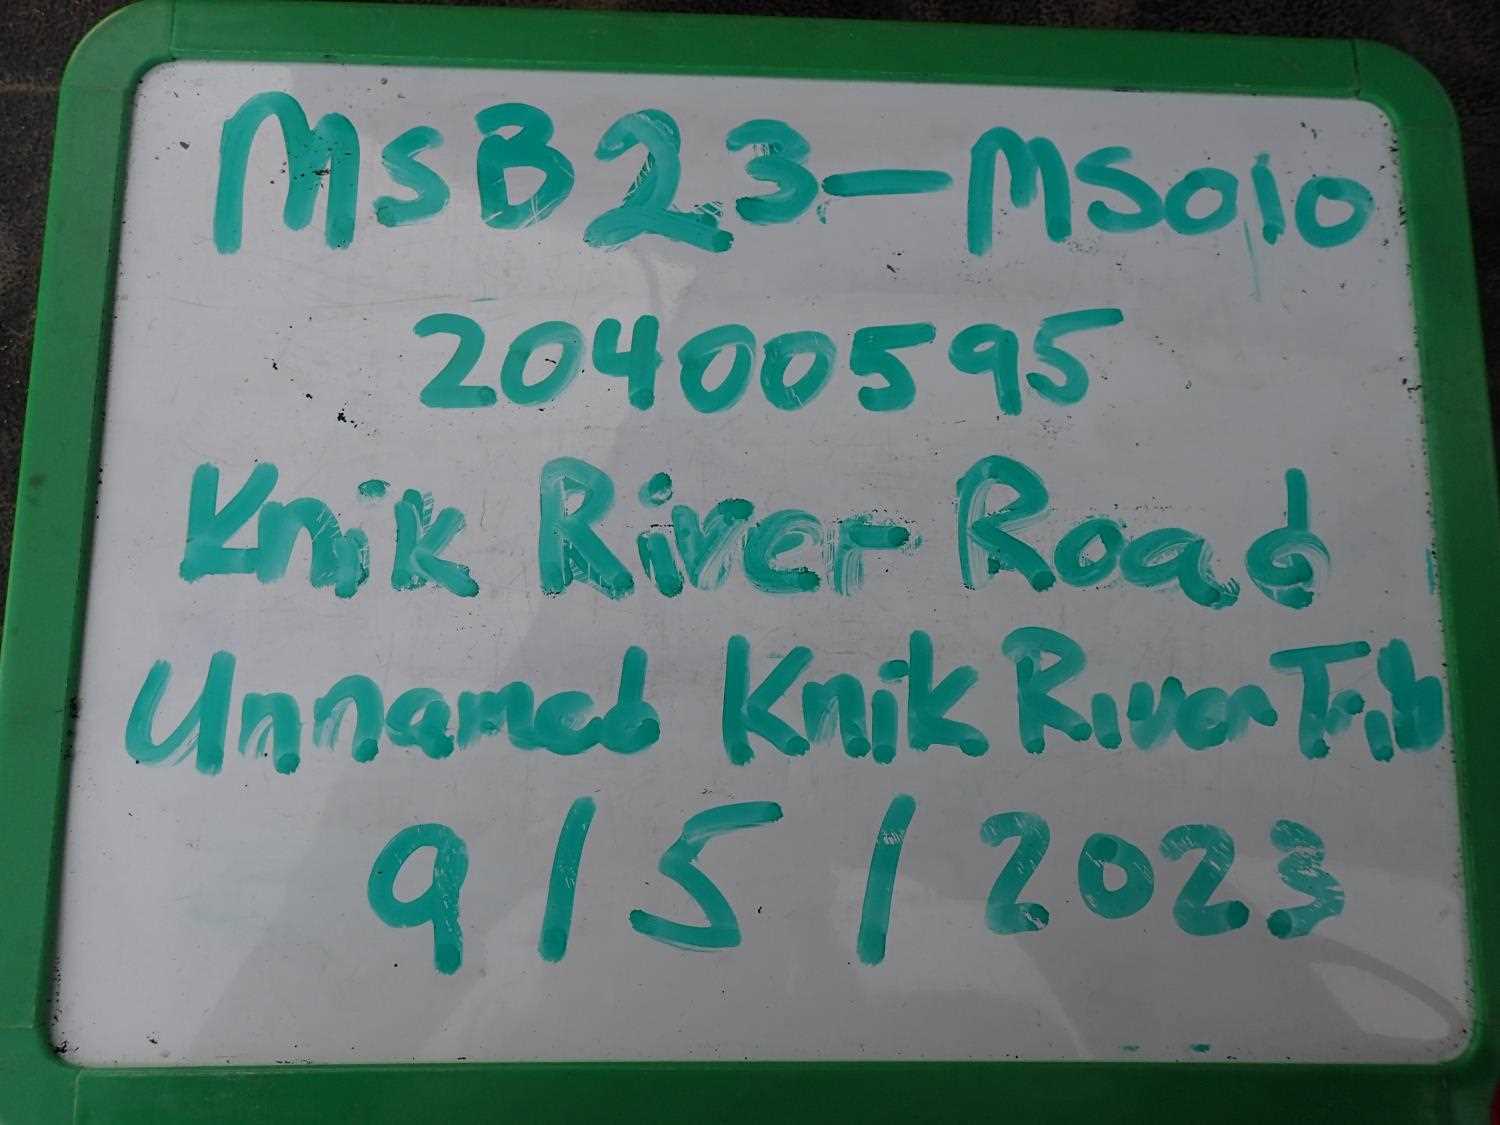 MSB23-MS010
20400595
Knik River Road
Unnamed Knik River Trib
9/5/2023